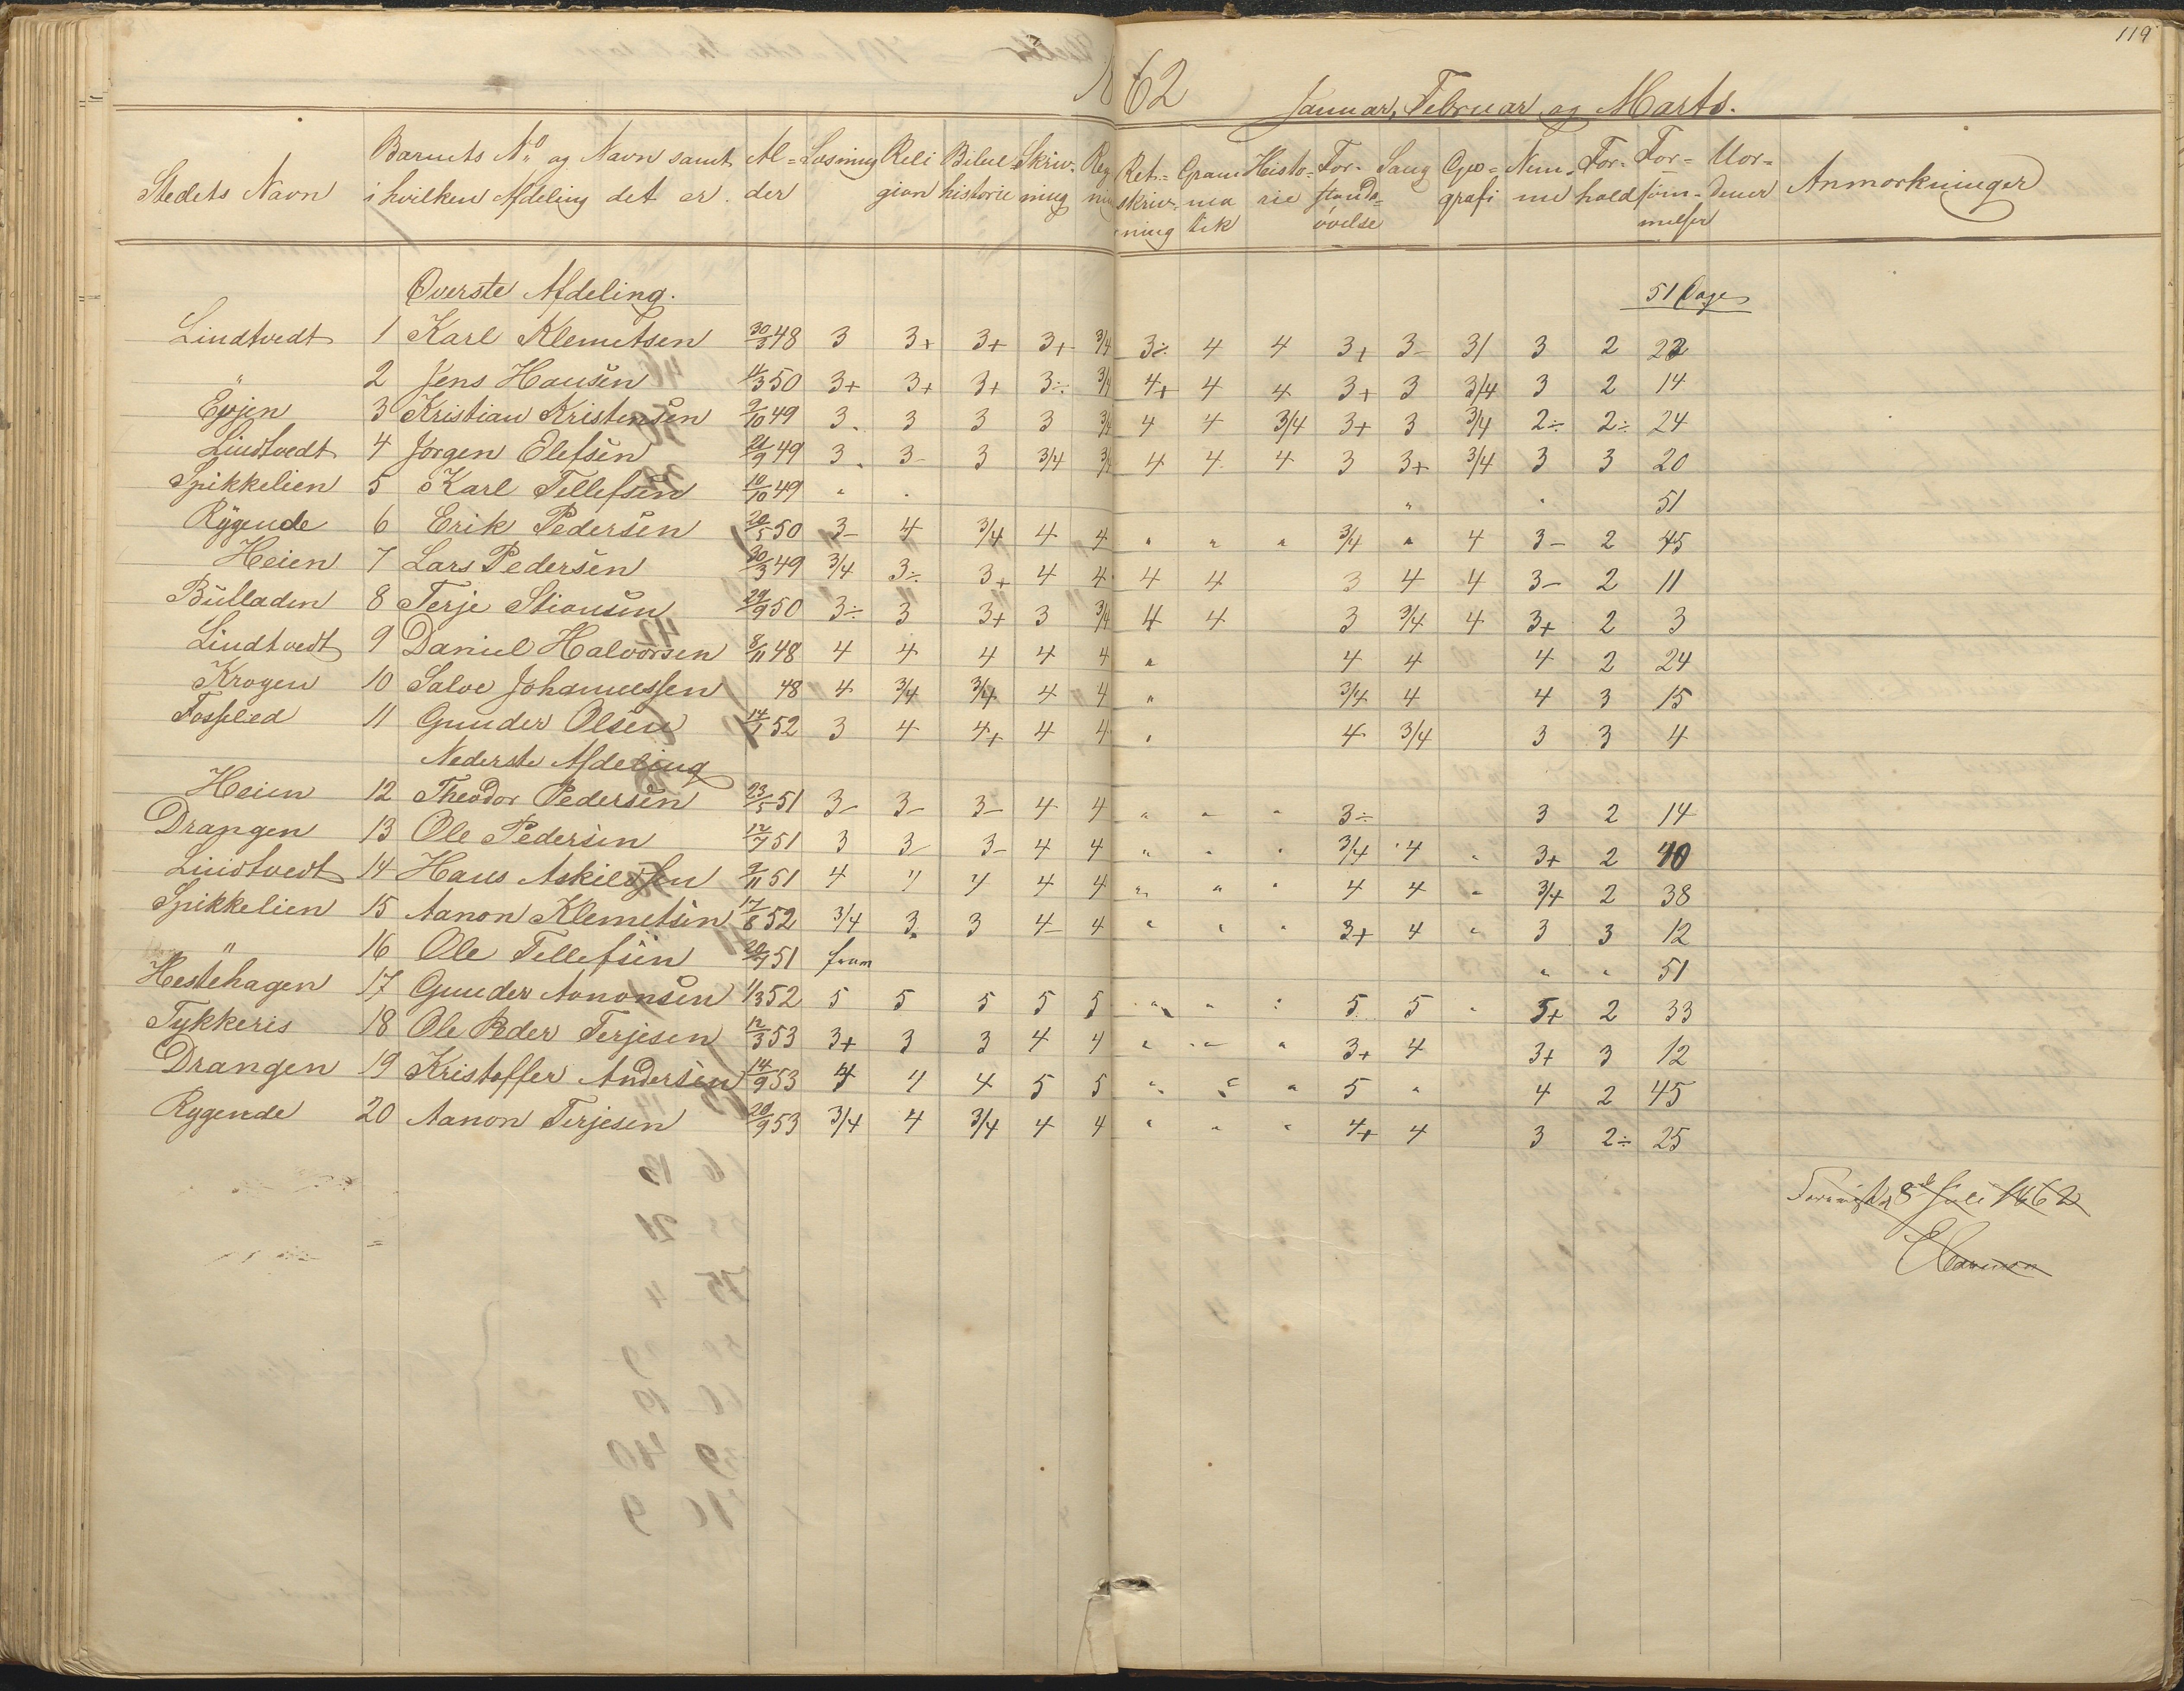 119
62 Januar, Februar og Marts.
Stedets Navn Barnets No og Navn samt i hvilken Afdeling det er. Al=der Læsning Religion Bibelhistorie Skriv=ning Reg=ning Ret=skriv=ning Grammatik Histo=rie For=stands=øvelse Sang Geo=grafi Nem=me For=hold For=søm=melser Mor= Anmærkninger
Øverste Afdeling. 51 Dage
Lindtvedt 1 Karl Klemetsen 30/3 48 3 3+ 3+ 3+ 3/4 3÷ 4 4 3+ 3- 3/ 3 2 22
" 2 Jens Hansen 50 3+ 3+ 3+ 3÷ 3/4 4+ 4 4 3+ 3 3/4 3 2 14
Evjen 3 Kristian Kristensen 9/10 49 3. 3 3 3 3/4 4 4 3/4 3+ 3 3/4 2÷ 2÷ 24
Lindtvedt 4 Jørgen Olefsen 21/9 49 3. 3- 3 3/4 3/4 4 4 4 3 3+ 3/4 3 3 20
Spikkelien 5 Karl Tellefsen 10/10 49 " . " . 51
Rygende 6 Erik Pedersen 20/5 50 3- 4 3/4 4 4 " " " 3/4 " 4 3- 2 45
Heien 7 Lars Pedersen 30/3 49 3/4 3÷ 3+ 4 4 4 4 3 4 4 3- 2 11
Bulladen 8 Terje Stiansen 29/9 50 3÷ 3 3+ 3 3/4 4 4 3 3/4 4 3+ 2 3
Lindtvedt 9 Daniel Halvorsen 8/11 48 4 4 4 4 4 " 4 4 4 2 24
Krogen 10 Salve Johannessen 48 4 3/4 3/4 4 4 " 3/4 4 4 3 15
11 Gunder Olsen 14/1 52 3 4 4+ 4 4 " 4 3/4 3 3 4
Nederste Afdeling
Heien 12 Theodor Pedersen 23/5 51 3- 3- 3- 4 4 " " " 3÷ 3 2 14
Drangen 13 Ole Pedersen 12/7 51 3 3- 3- 4 4 " " " 3/4 4 " 3+ 2 40
Lindtvedt 14 Hans Askildsen 9/11 51 4 4 4 4 4 " " " 4 4 " 3/4 2 38
Spikkelien 15 Aanon Klemetsen 17/8 52 3/4 3. 3 4- 4 " " " 3+ 4 " 3 3 12
" 16 Ole Tellefsen 51 " " 51
Hestehagen 17 Gunder Aanonsen 1/3 52 5 5 5 5 5 " " " 5 5 " 5+ 2 33
Tykkeris 18 Ole Peder Terjesen 12/3 53 3+ 3 3 4 4 " " " 3+ 4 3+ 3 12
Drangen 19 Kristoffer Andersen 14/9 53 4 4 4 5 5 " " " 5 " 4 2 45
Rygende 20 Aanon Terjesen 20/9 53 3/4 4 3/4 4 4 " " " 4+ 4 3 2÷ 25
8de Juli 1862